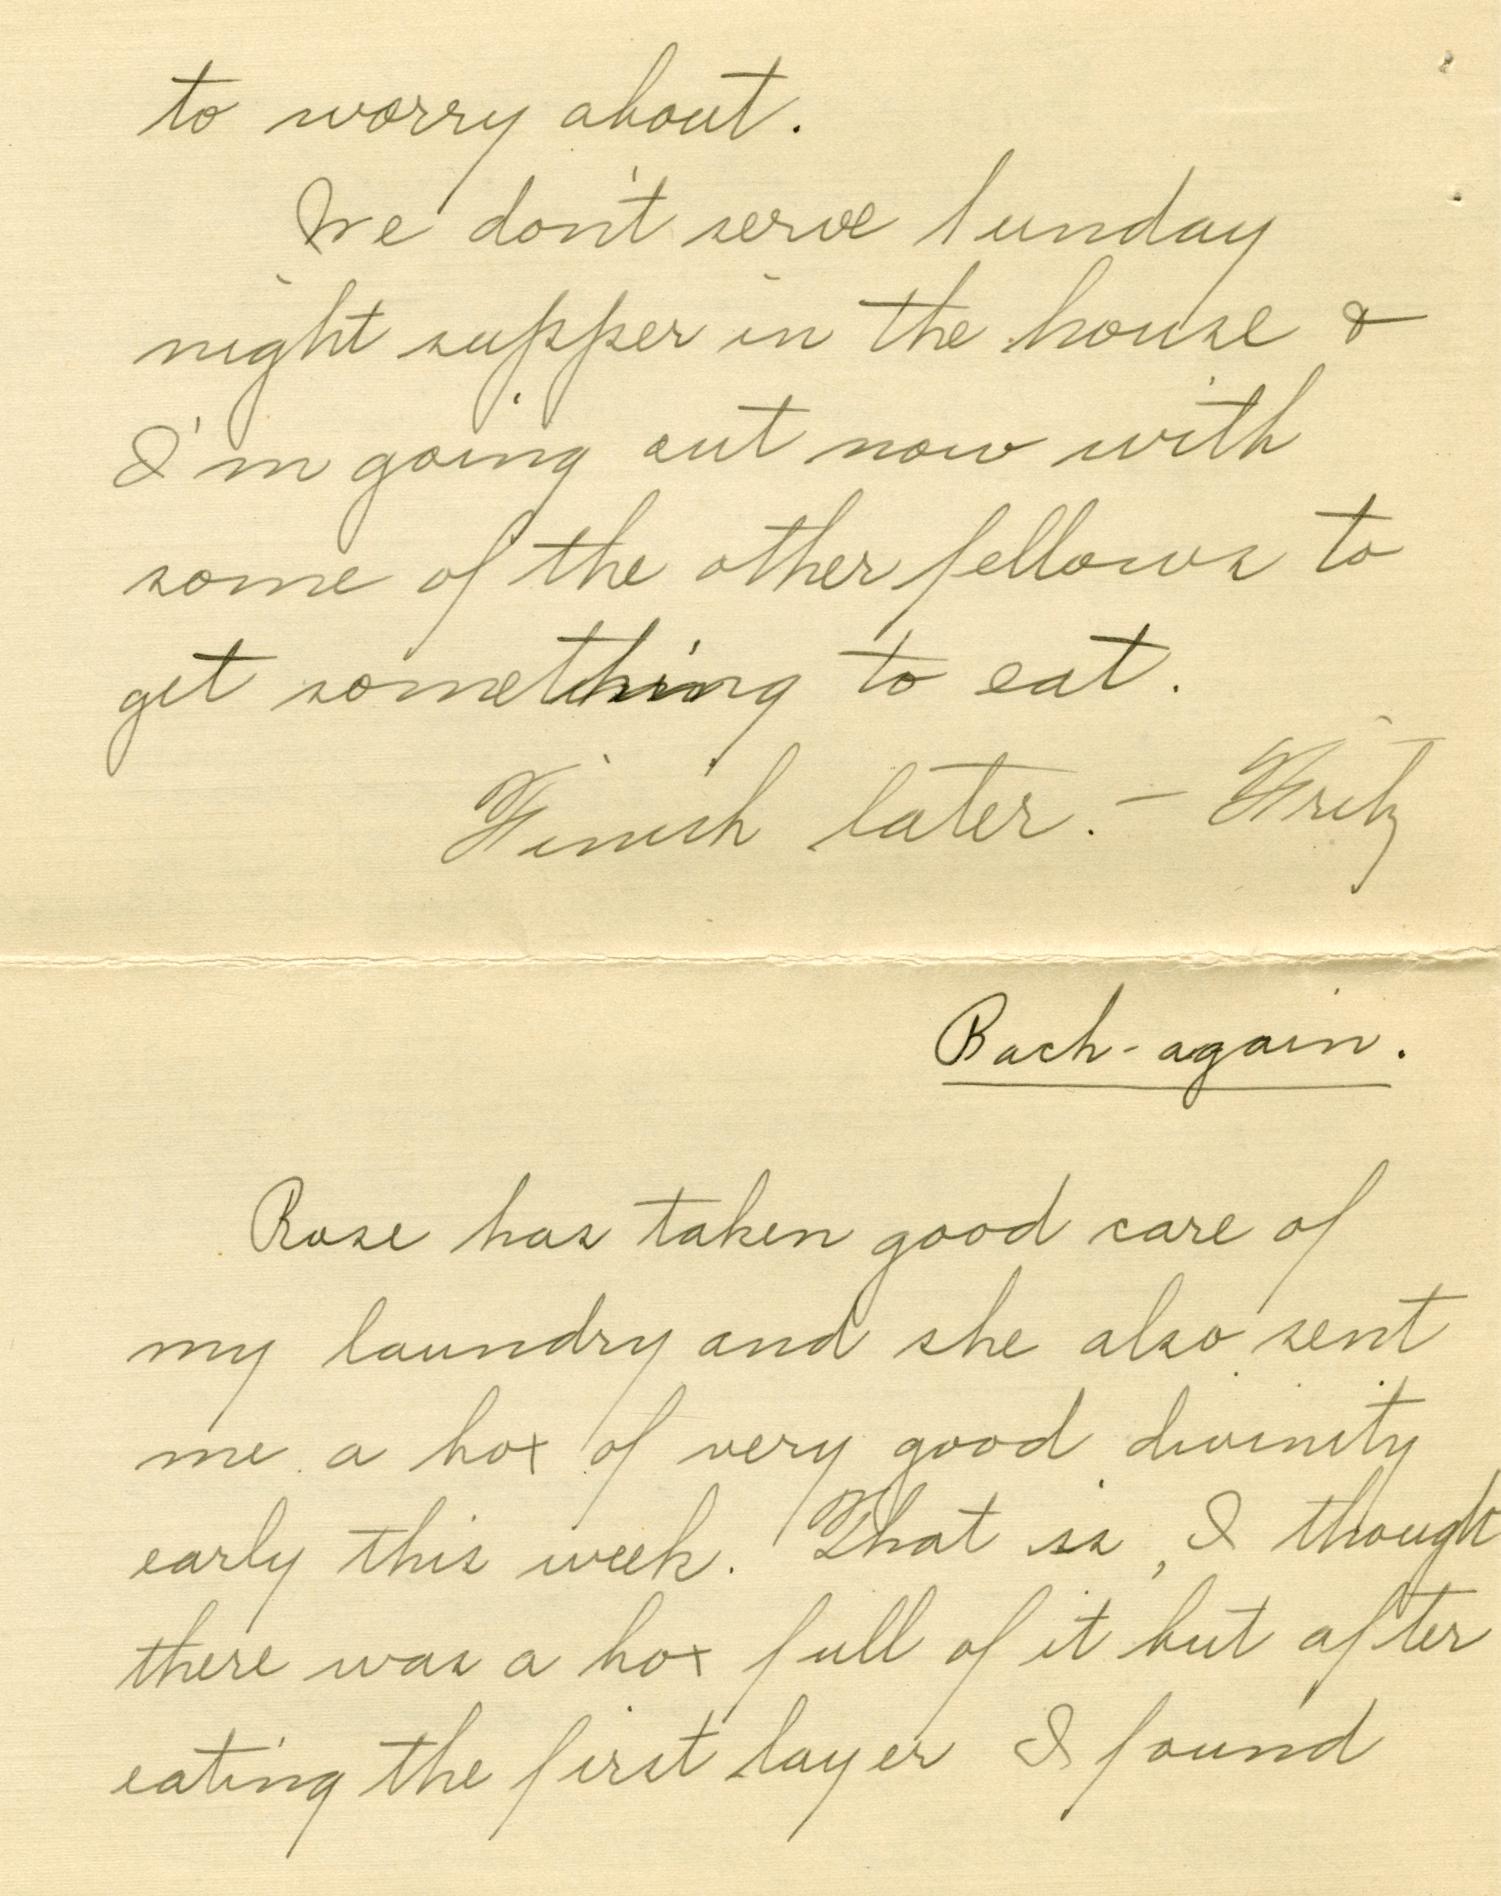 to worry about.
We don't serve Sunday
night supper in the house &
I'm going out now with
some of the other fellows to
get something to eat.
Finish later. – Fritz
Back-again.
Rose has taken good care of
my laundry and she also sent
me a box of very good divinity
early this week. That is, I though
there was a box full of it but after
eating the first layer I found